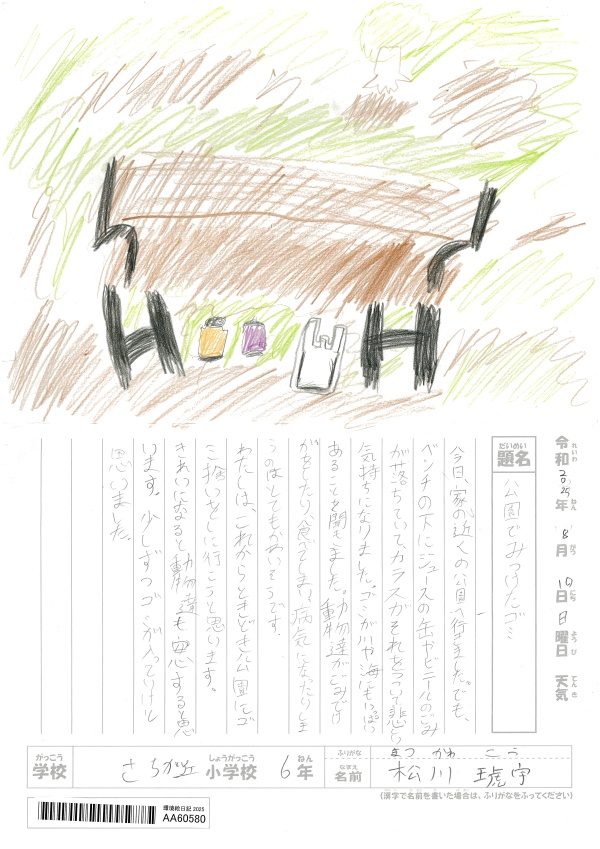 令和2025年8月10日日曜日 天気
れいわ ねん がつ にち ようび てんき
だいめい
題名
公園でみつけたゴミ
今日、家の近くの公園へ行きました。でも、
ベンチの下にジュースの缶やビニールのごみ
が落ちていて、カラスがそれをつつ
気持ちになりました。ゴミが川や海にもいっぱい
あることを聞きました。動物達がごみでけ
がをしたり、食べてしまい病気になったりしま
うのはとてもかわいそうです。
わたしは、これからときどき公園にゴ
ミ拾いをしに行こうと思います。
きれいになると動物達も安心すると思
います。少しずつゴミが
思いました。
がっこう
学校
さちが丘
しょうがっこう
小学校
6
ねん
年
ふりがな
まつ かわ こう
なまえ
名前
松川 琥宇
(漢字で名前を書いた場合は、ふりがなをふってください)
環境絵日記 2025
AA60580